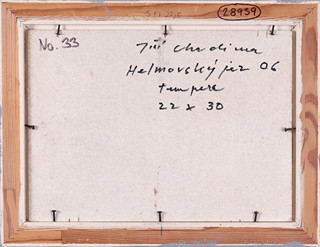 28939
No. 33
Jiří Chadima
Helmovský jez 06
tempera
22 x 30